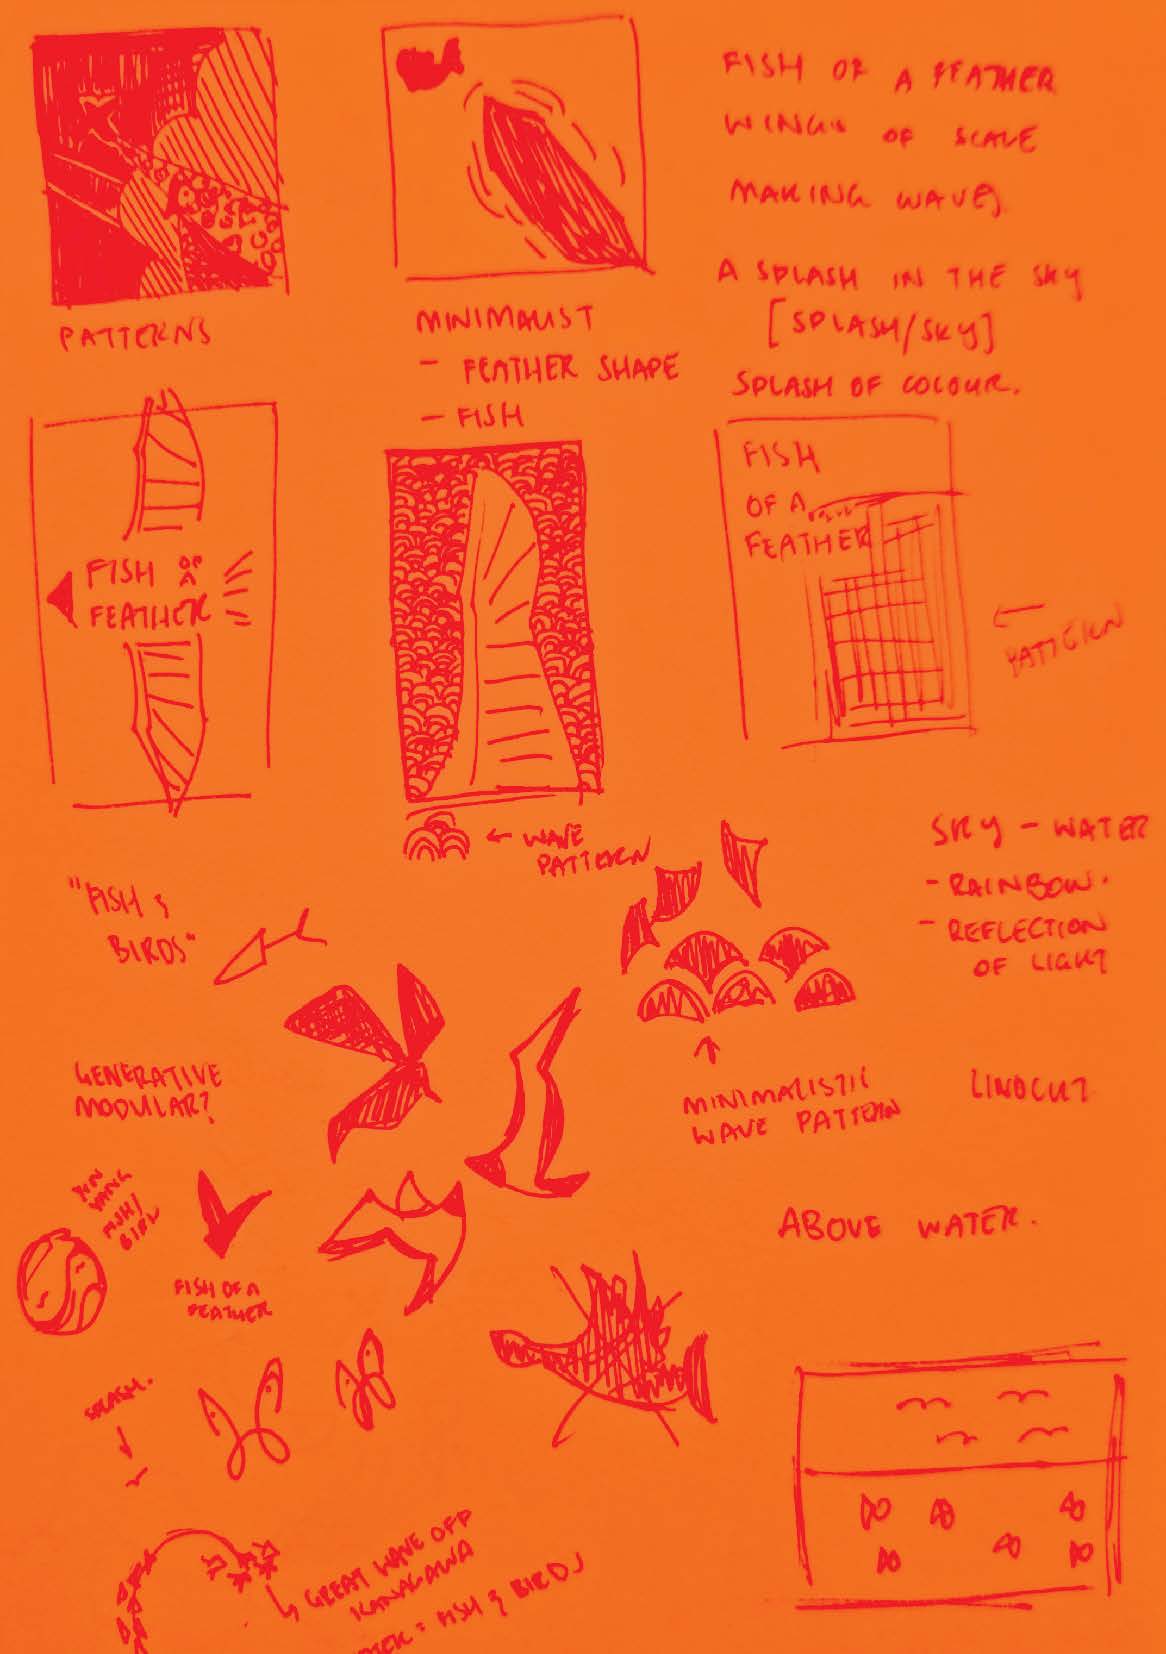 FISH OF A FEATHER
WINGS OF SCALE
MAKING WAVES
A SPLASH IN THE SKY
[SPLASH/SKY]
SPLASH OF COLOUR.
PATTERNS
MINIMALIST
- FEATHER SHAPE
- FISH
FISH OF A
FEATHER
FISH
OF A
FEATHER
← PATTERN
← WAVE
PATTERN
SKY - WATER
- RAINBOW.
- REFLECTION
OF LIGHT
"FISH &
BIRDS"
GENERATIVE
MODULAR?
MINIMALISTIC
WAVE PATTERN
LINOCUT
YIN
YANG
FISH/
BIRD
FISH OF A
FEATHER
ABOVE WATER.
SPLASH.
GREAT WAVE OFF
KANAGAWA
= FISH & BIRDS